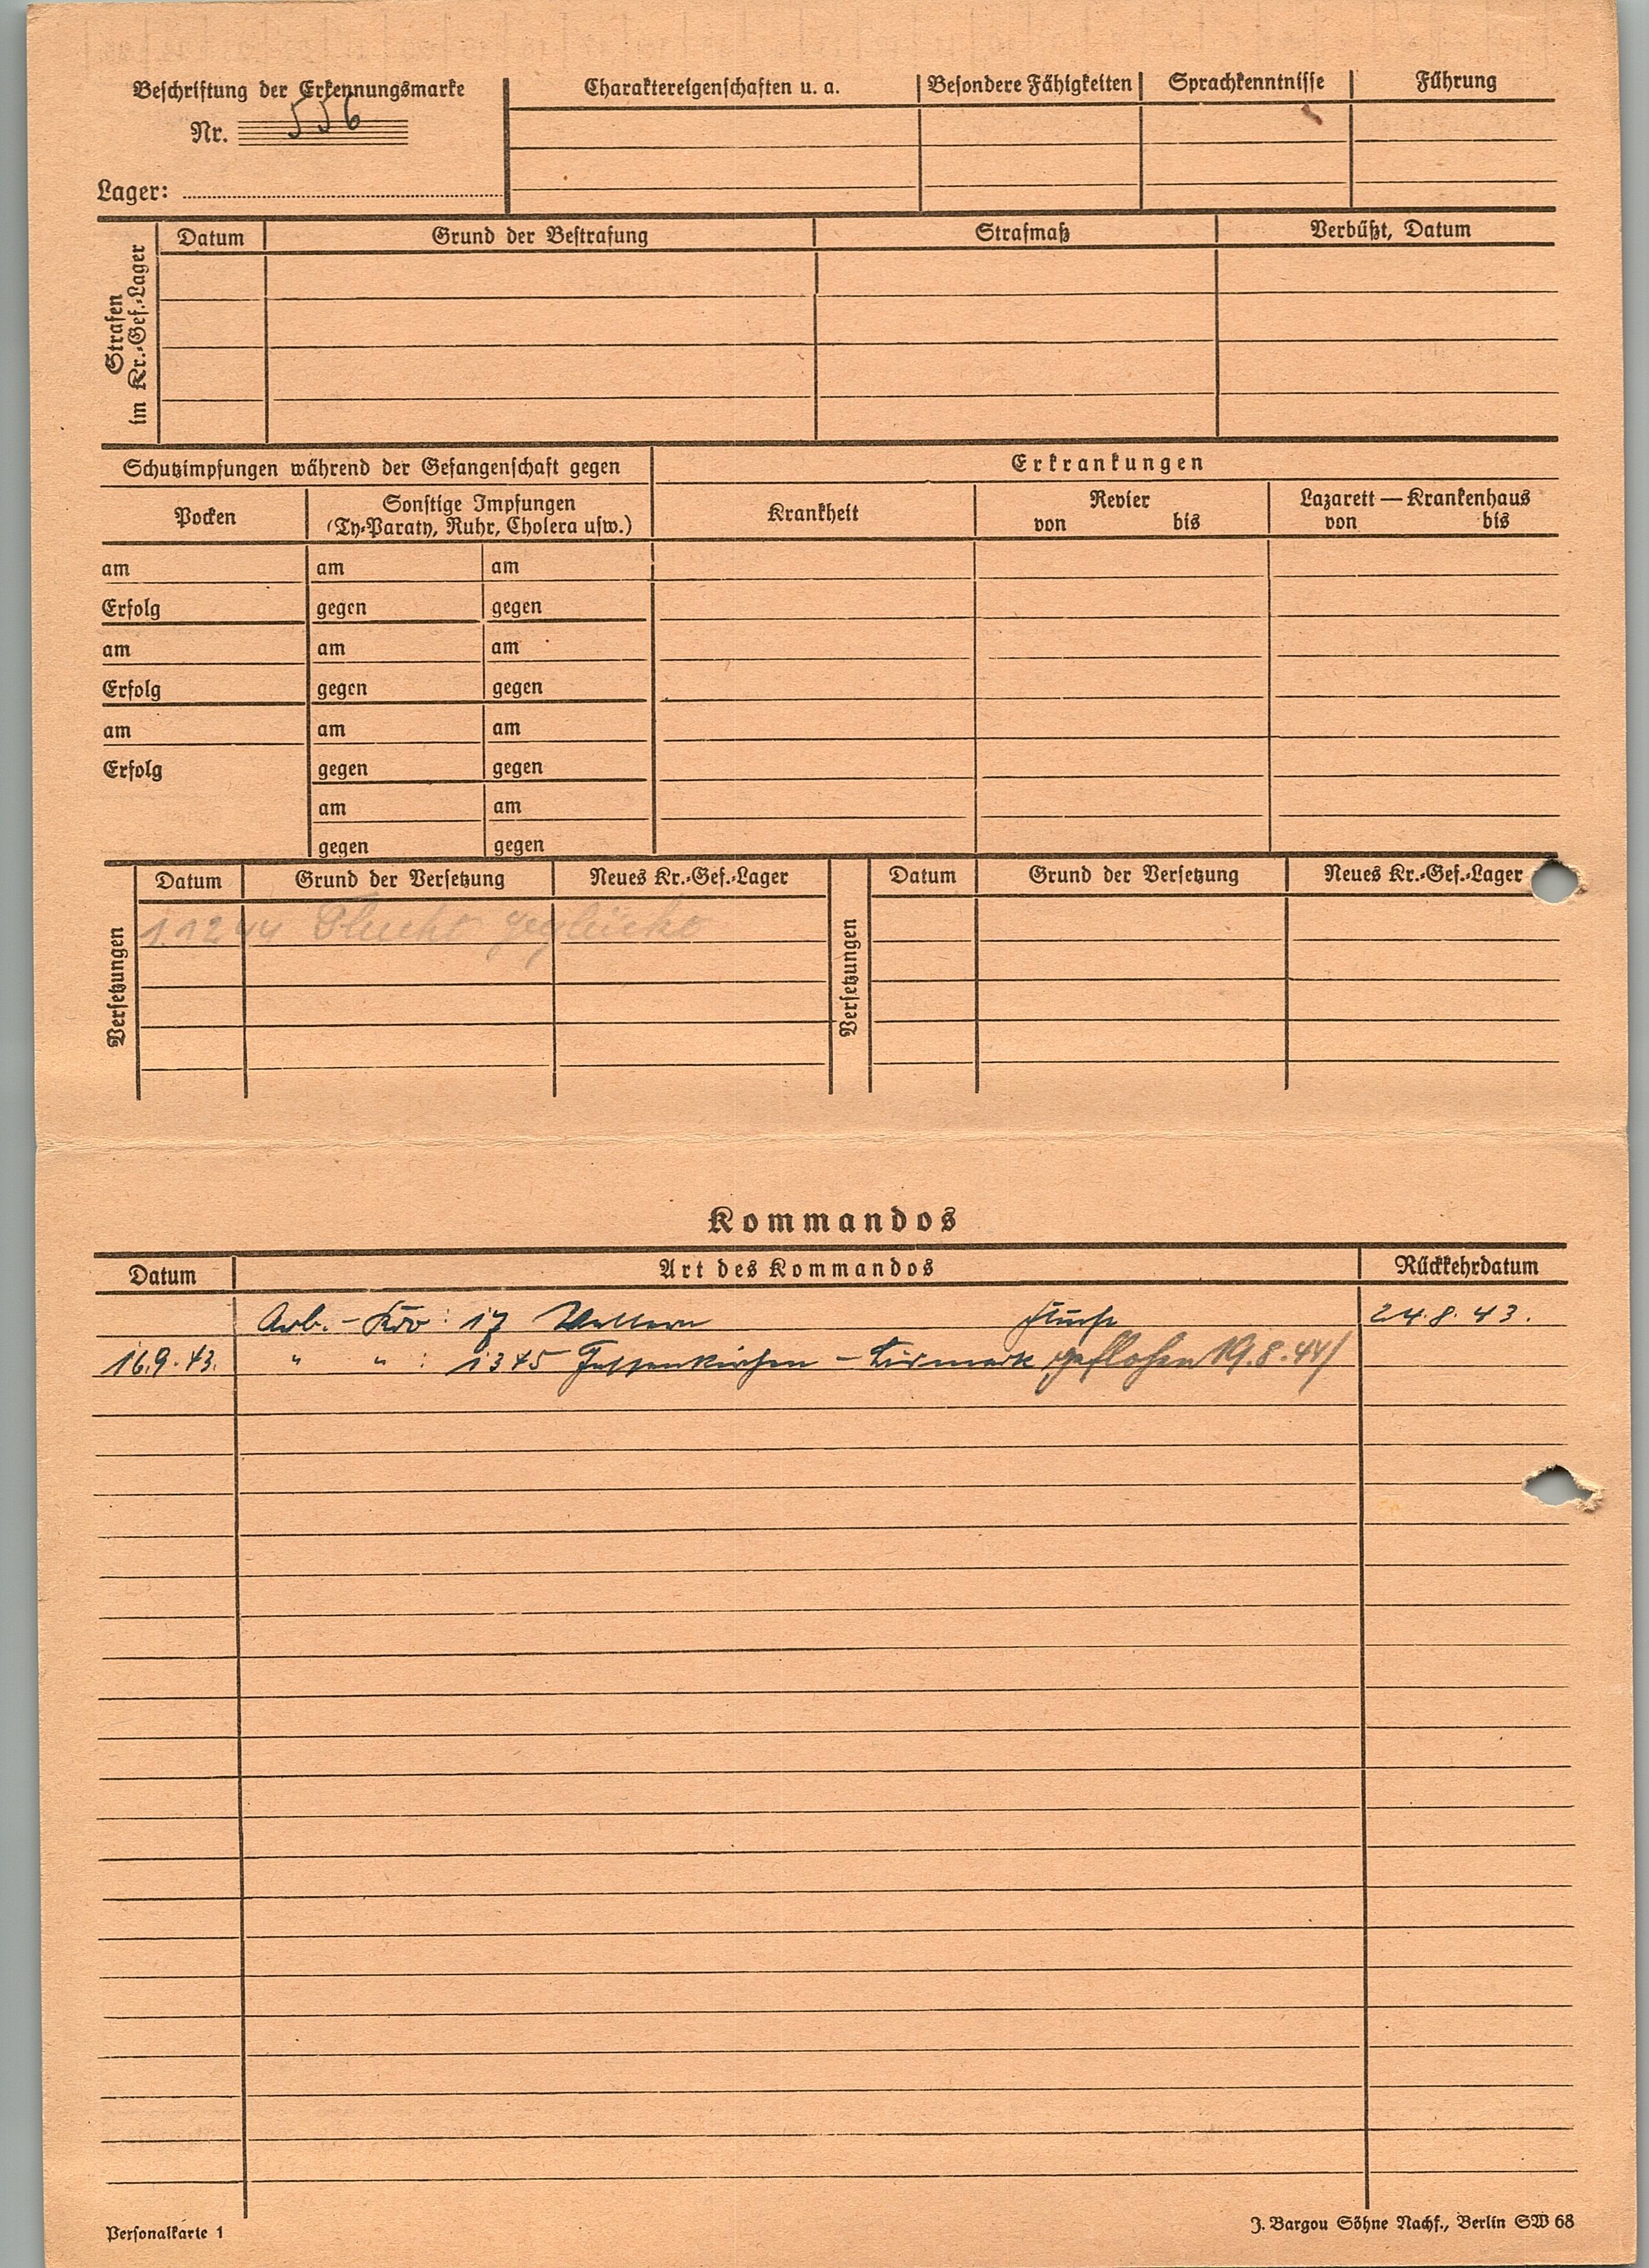 Beschriftung der Erkennungsmarke
Nr. 556
Lager:
Charaktereigenschaften u. a. Besondere Fähigkeiten Sprachkenntnisse Führung
Strafen im Kr.-Gef.-Lager
Datum Grund der Bestrafung Strafmaß Verbüßt, Datum
Schutzimpfungen während der Gefangenschaft gegen Erkrankungen
Pocken Sonstige Impfungen Krankheit Revier Lazarett — Krankenhaus
(Ty-Paraty, Ruhr, Cholera usw.) von bis von bis
am am am
Erfolg gegen gegen
am am am
Erfolg gegen gegen
am am am
Erfolg gegen gegen
am am
gegen gegen
Versetzungen
Datum Grund der Versetzung Neues Kr.-Gef.-Lager
1.12.44 Flucht geglückt
Versetzungen
Datum Grund der Versetzung Neues Kr.-Gef.-Lager
Kommandos
Datum Art des Kommandos Rückkehrdatum
Arb.-Kdo: 17 Flucht 24.8.43.
16.9.43. " " : 1345 geflohen 19.8.44/
Personalkarte 1
J. Bargou Söhne Nachf., Berlin SW 68